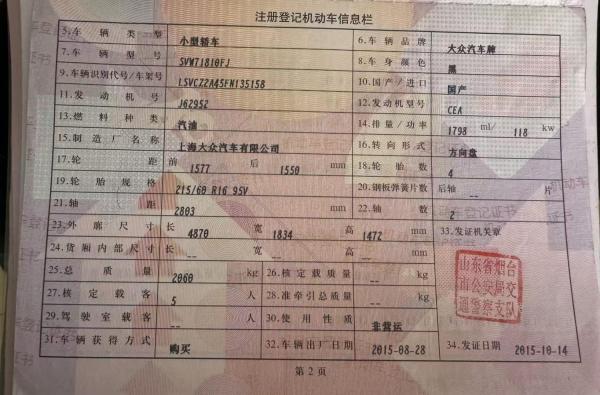 注册登记机动车信息栏
5.车辆类型 小型轿车 6.车辆品牌 大众汽车牌
7.车辆型号 SVW71810FJ 8.车身颜色 黑
9.车辆识别代号/车架号 LSVCZ2A45FN135158 10.国产/进口 国产
11.发动机号 J62952 12.发动机型号 CEA
13.燃料种类 汽油 14.排量/功率 1798 ml/ 118 kw
15.制造厂名称 上海大众汽车有限公司 16.转向形式 方向盘
17.轮距 前 1577 后 1550 mm 18.轮胎数 4
19.轮胎规格 215/60 R16 95V 20.钢板弹簧片数 后轴 -- 片
21.轴距 2803 mm 22.轴数 2
23.外廓尺寸 长 4870 宽 1834 高 1472 mm 33.发证机关章
24.货厢内部尺寸 长 -- 宽 -- 高 -- mm
25.总质量 2060 kg 26.核定载质量 -- kg
27.核定载客 5 人 28.准牵引总质量 -- kg
29.驾驶室载客 -- 人 30.使用性质 非营运
31.车辆获得方式 购买 32.车辆出厂日期 2015-08-28 34.发证日期 2015-10-14
山东省烟台
市公安局交
通警察支队
第2页